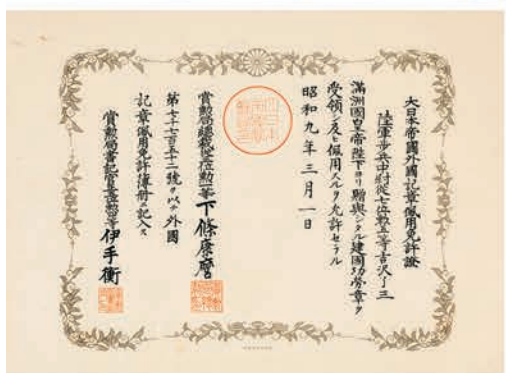 大日本帝國外國記章佩用免許證
陸軍步兵中尉從七位勲五等吉沢了三
滿洲國皇帝陛下ヨリ贈與シタル建國功勞章ヲ
受領シ及ヒ佩用スルヲ允許セラル
昭和九年三月一日
賞勲局總裁從二位勲一等下條康麿
第七十七百五十二號ヲ以テ外國
記章佩用免許簿册ニ記入ス
賞勲局書記官 勲 等伊手衡